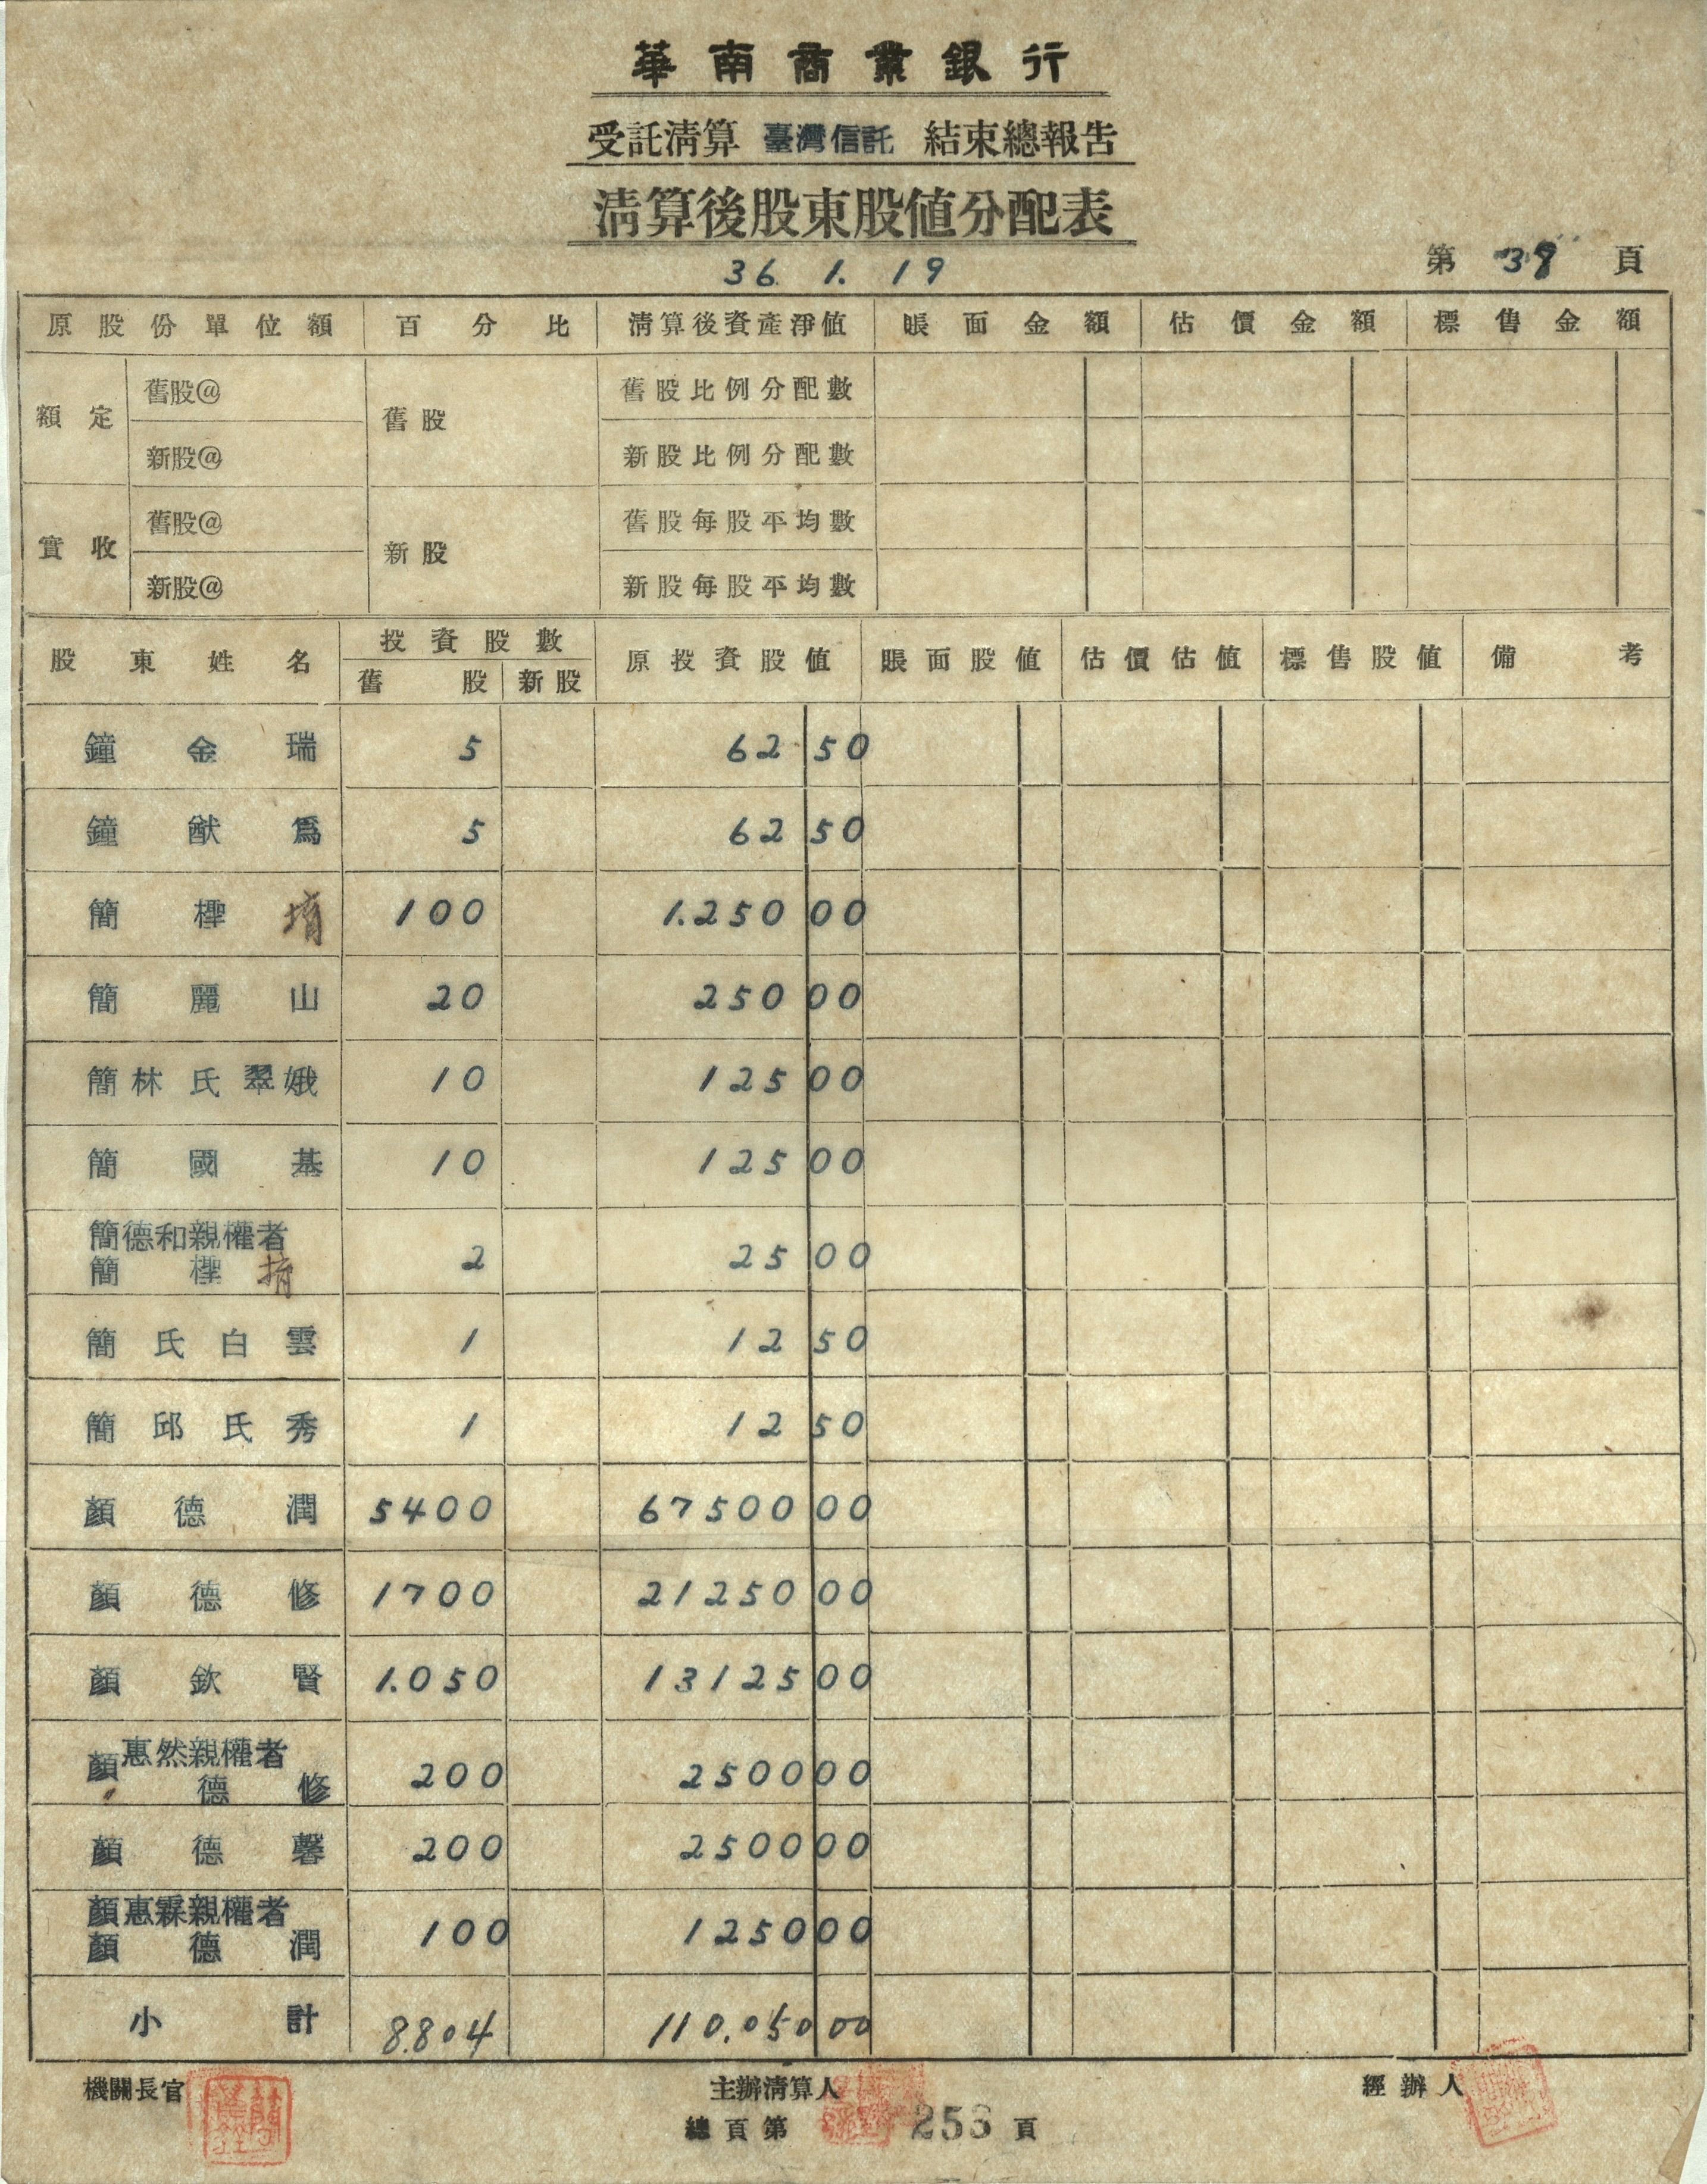 華南商業銀行
受託清算 臺灣信託 結束總報告
清算後股東股值分配表
36. 1. 19
第 39 頁
原股份單位額 百分比 清算後資產淨值 賬面金額 估價金額 標售金額
額定 舊股@ 舊股 舊股比例分配數
新股@ 新股比例分配數
實收 舊股@ 新股 舊股每股平均數
新股@ 新股每股平均數
股東姓名 投資股數 原投資股值 賬面股值 估價估值 標售股值 備考
舊股 新股
鐘金瑞 5 62 50
鐘猷為 5 62 50
簡檉堉 100 1.250 00
簡麗山 20 250 00
簡林氏翠娥 10 125 00
簡國基 10 125 00
簡德和親權者
簡檉堉 2 25 00
簡氏白雲 1 12 50
簡邱氏秀 1 12 50
顏德潤 5400 67500 00
顏德修 1700 21250 00
顏欽賢 1.050 13125 00
顏惠然親權者
德修 200 2500 00
顏德馨 200 2500 00
顏惠霖親權者
顏德潤 100 1250 00
小計 8.804 110.050 00
機關長官 主辦清算人 經辦人
總頁第 253 頁